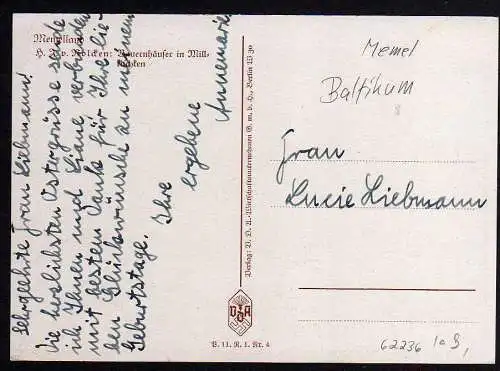 Memelland
H. A. v. Nolcken: Bauernhäuser in Will-
kischken
Sehrgeehrte Frau Liebmann!
Die herzlichsten Ostergrüsse sende
ich Ihnen und Liane verbunden
mit bestem Dank für Ihre lie-
ben Glückwünsche zu meinem
Geburtstage.
Ihre
ergebene
Annemarie
Verlag: V. D. A.-Wirtschaftsunternehmungen G. m. b. H., Berlin W 30
VDA
B. 11. R. 1. Nr. 4
Memel
Baltikum
Frau
Lucie Liebmann
62236